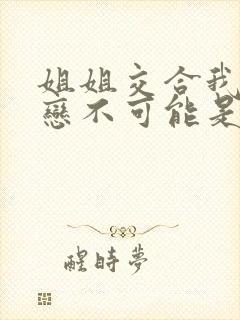 姐姐交合我
戀不可能是
醒時夢